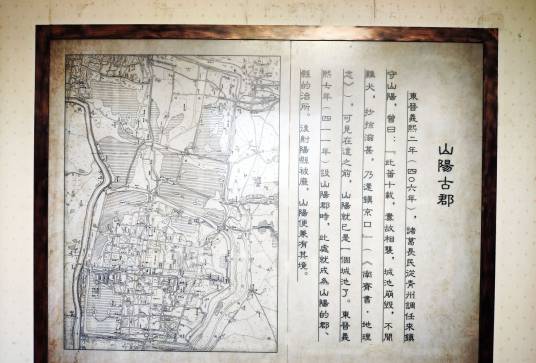 山陽古郡
東晉義熙二年（四〇六年），諸葛長民從青州調任來鎮
守山陽，曾曰：『此蕃十載，釁故相襲，城池崩毀，不聞
雞犬，抄掠滋甚，乃還鎮京口』（《南齊書·地理
志》），可見在這之前，山陽就已是一個城池了。東晉義
熙七年（四一一年）設山陽郡時，此處就成為山陽的郡、
縣的治所。後射陽縣被廢，山陽便兼有其境。